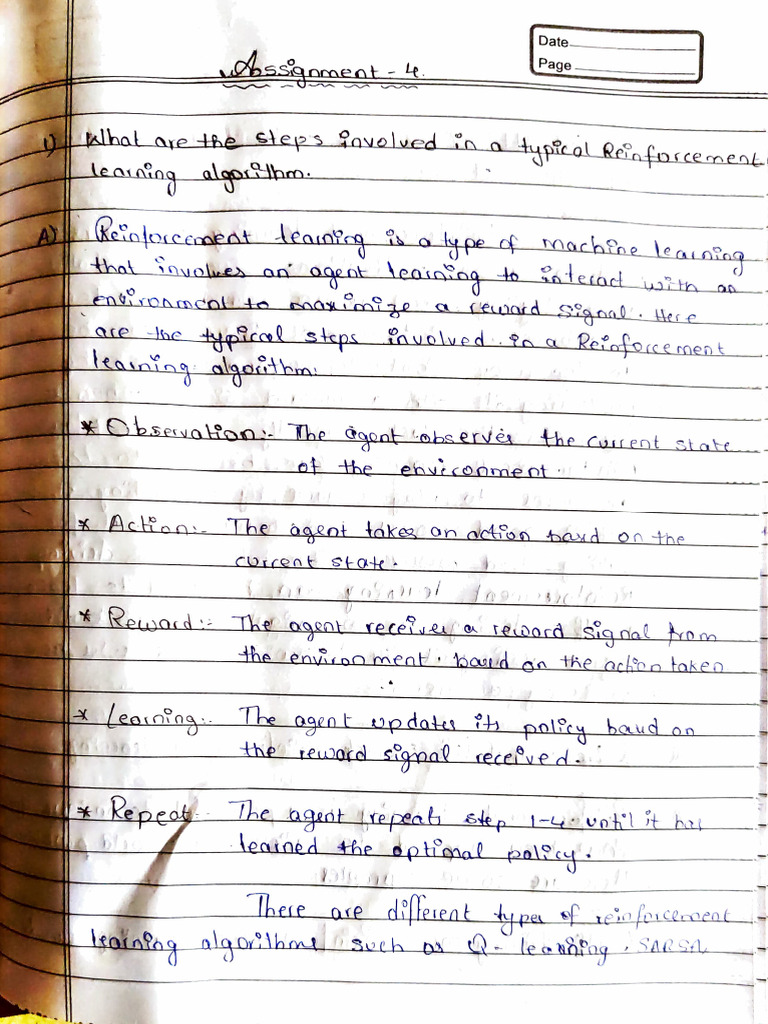 Date
Page
Assignment - 4.
1) What are the steps involved in a typical Reinforcement
learning algorithm.
A) Reinforcement learning is a type of machine learning
that involves an agent learning to interact with an
environment to maximize a reward signal. Here
are the typical steps involved in a Reinforcement
learning algorithm:
* Observation:- The agent observes the current state
of the environment.
* Action:- The agent takes an action based on the
current state.
* Reward:- The agent receives a reward signal from
the environment. based on the action taken
* Learning:- The agent updates its policy based on
the reward signal received.
* Repeat:- The agent repeats step 1-4 until it has
learned the optimal policy.
There are different types of reinforcement
learning algorithms such as Q-learning, SARSA